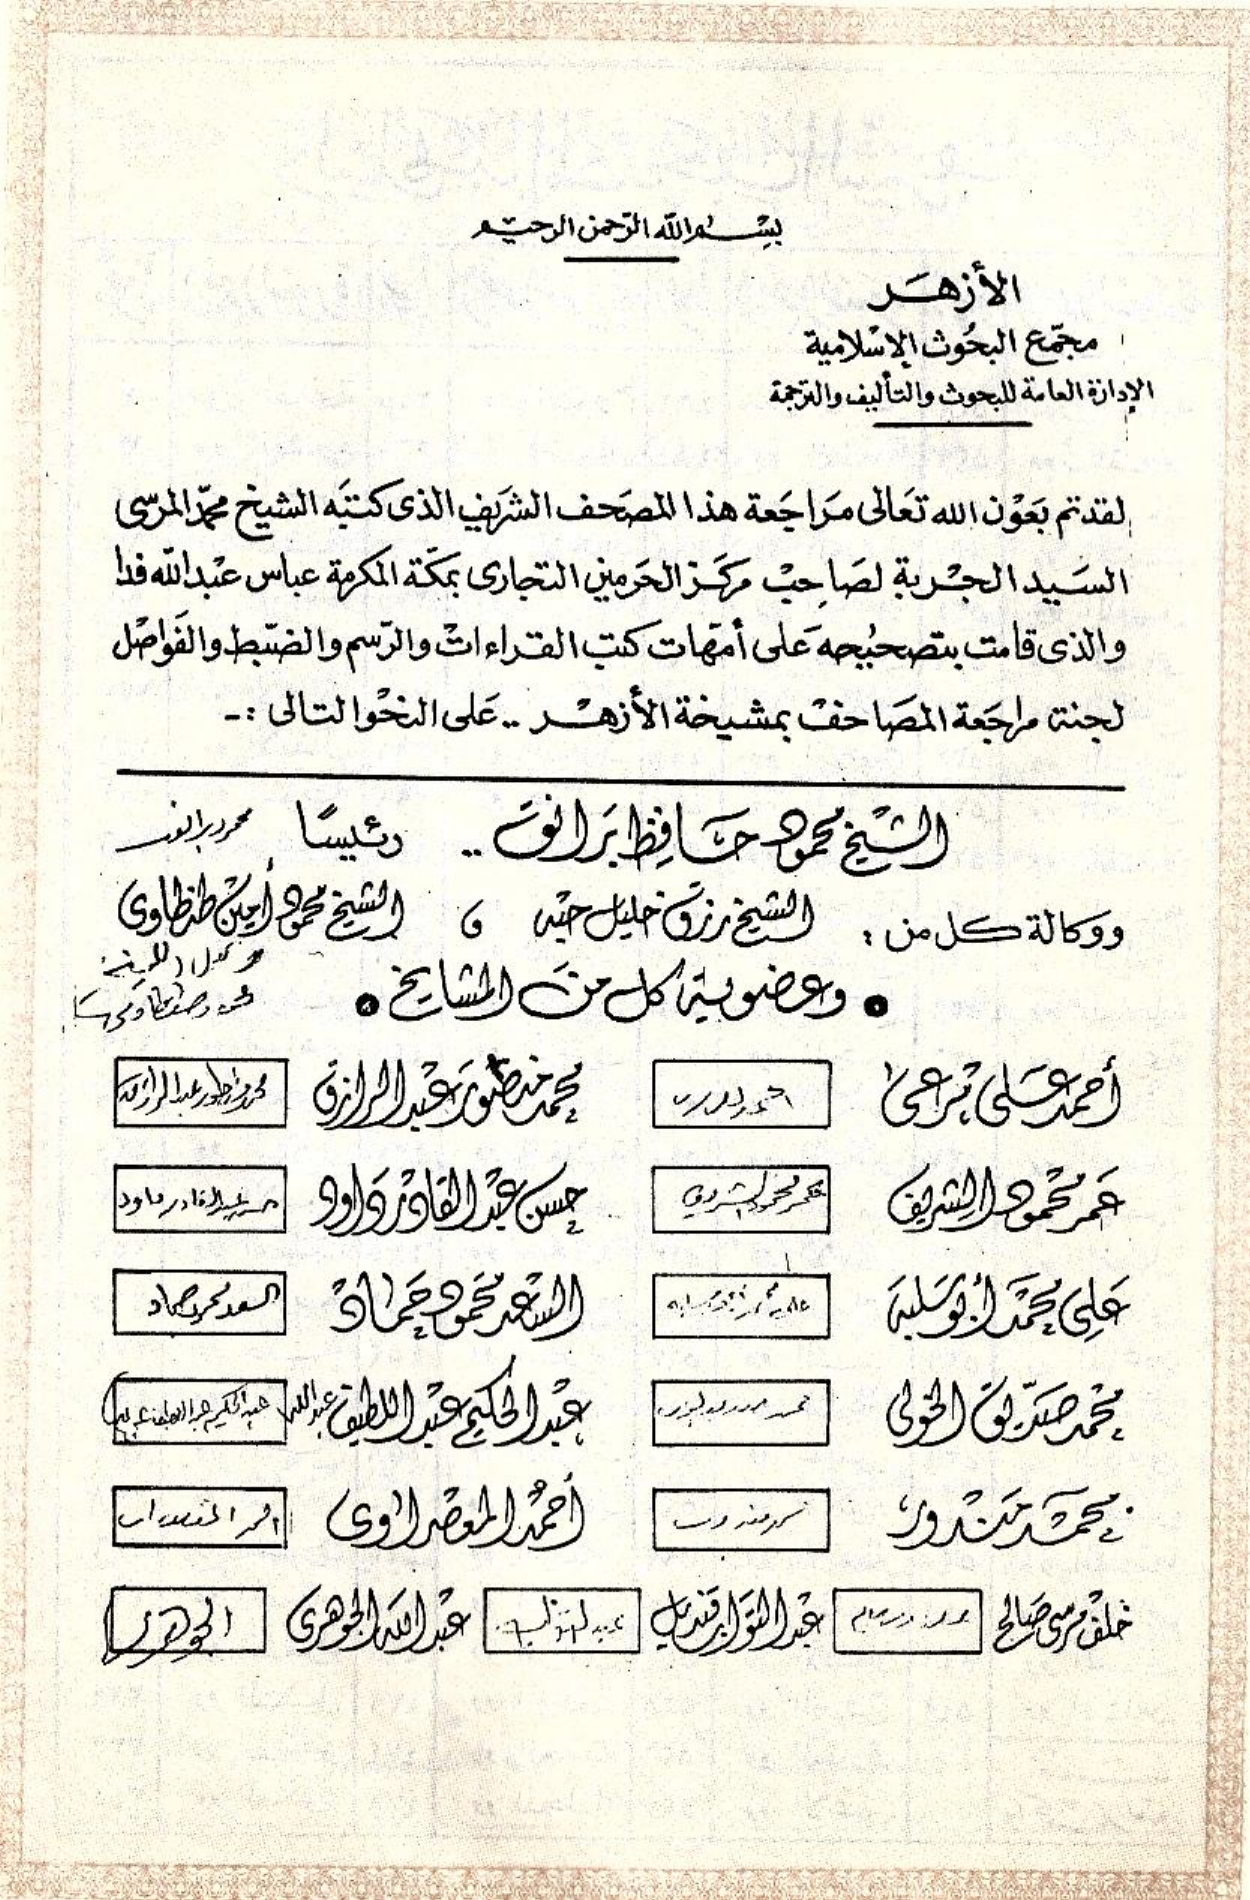 بسم الله الرحمن الرحيم
الأزهر
مجمّع البحوث الإسلامية
الإدارة العامة للبحوث والتأليف والترجمة
لقد تم بعَوْن الله تعَالى مرَاجَعة هذا المصحف الشريف الذى كتبَه الشيخ محمّد المرسى
السَيد الجربة لصَاحِب مركز الحَرمين التجارى بمكّة المكرمة عباس عبْد الله فدا
والذى قامت بتصحيحه عَلى أمّهات كتب القراءات والرّسم والضبط والفَواصْل
لجنة مراجَعة المصَاحف بمشيخة الأزهر .. عَلى النحْو التالى :-
الشيخ محمود حَافظ برَانق .. رئيسًا محمود برانق
ووكالة كل من : الشيخ رزق خليل حبه و الشيخ محمود أمين طنطاوى
• وعضوية كل من المشايخ •
أحمد عَلى مرعى محمد منصور عبد الرازق محمد منصور عبد الرازق
عمر محمود الشريف عمر محمود الشريف حسن عبد القادر داود حسن عبد القادر داود
عَلى محمّد أبو سلبة السَعد محمود حماد السعد محمود حماد
محمد صدّيق الخولى عبد الحكيم عبد اللطيف عبد الله عبد الحكيم عبد اللطيف عبد الله
محمّد مَندور أحمد المعصراوى
خلف مرسى صالح عبد التواب قنديل عبد الله الجوهرى الجوهرى